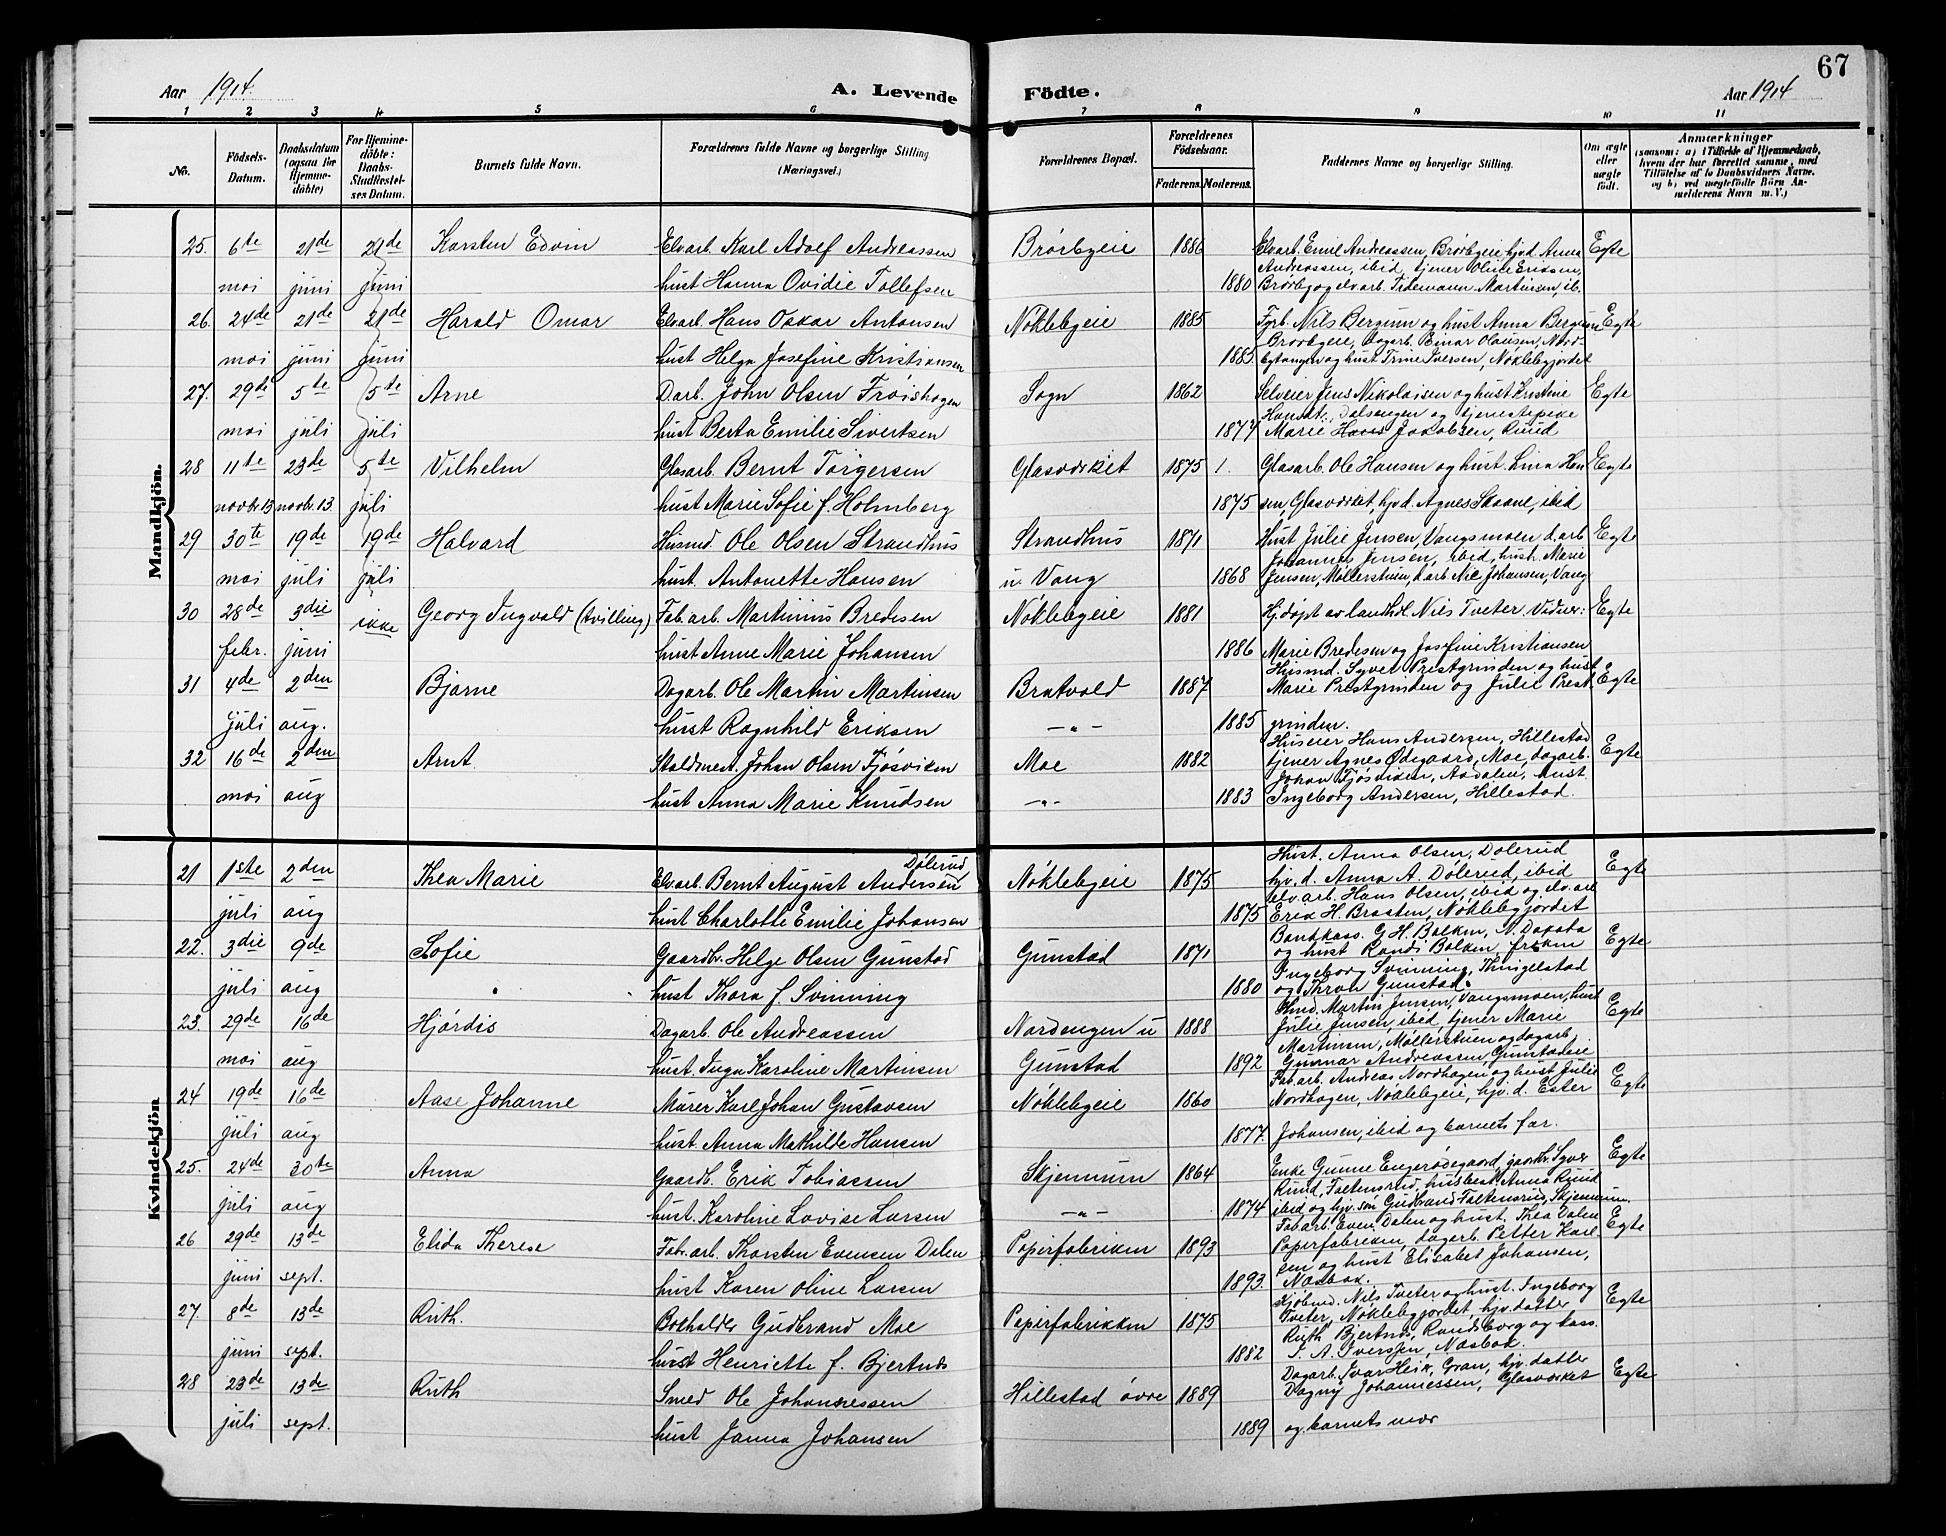 67
Aar 1914.
A. Levende Födte.
Aar 1914
1 2 3 4 5 6 7 8 9 10 11
No.
Födsels-Datum.
Daabsdatum (ogsaa for Hjemmedöbte)
For Hjemmedöbte: Daabs-Stadfæstelses Datum.
Barnets fulde Navn.
Forældrenes fulde Navne og borgerlige Stilling (Næringsvei.)
Forældrenes Bopæl.
Forældrenes Födselsaar.
Faderens. Moderens.
Faddernes Navne og borgerlige Stilling.
Om ægte eller uægte födt.
Anmærkninger
(saasom: a) i Tilfælde af Hjemmedaab, hvem der har forrettet samme, med Tilföielse af to Daabsvidners Navne. og b) ved uægtefödte Börn Anmelderens Navn m. V.)
Mandkjön.
25. 6te 21de 21de Karsten Edvin Elvarb. Karl Adolf Andreassen Brørbyeie 1886 Elvarb. Emil Andreassen, Brørbyeie, hjv.d. Anna Egte
Andreassen, ibid, tjener Oline Erissen,
mai juni juni hust Hanna Ovidie Tollefsen 1880 Brørby og elvarb. Tidemann Martinsen, ib.
26. 24de 21de 21de Harald Omar Elvarb. Hans Oskar Antonsen Nøklebyeie 1885 Fyrb. Nils Bergum og hust Anna Bergum Egte
Brørbyeie, dagarb. Einar Olausen, Nord-
mai juni juni hust Helga Josefine Kristiansen 1885 bytangen og hust Trine Iversen, Nøklebygjordet
27. 29de 5te 5te Arne Darb. John Olsen Frøishagen Sogn 1862 Selveier Jens Nikolaisen og hust Kristine Egte
mai juli juli hust Berta Emilie Sivertsen 1877 Marie Jakobsen, Ruud
28 11te 23de 5te Vilhelm Glasarb. Bernt Torgersen Glasværket 1875 1. Glasarb. Ole Hansen og hust. Lina Han Egte
novbr. 13 novbr. 13 juli hust Marie Sofie f. Holmberg 1875 sen, Glasværket, hjv.d. Agnes Skaane, ibid
29 30te 19de 19de Halvard Husmd. Ole Olsen Strandhus Strandhus 1871 Hust Julie Jensen, Vangsmoen d. arb Egte
Johannes Jensen, ibid, hust. Marie
mai juli juli hust. Antonette Hansen u. Vang 1868 Jensen, Møllerstuen, d. arb Nic Johansen, Vang
30 28de 3die ikke Georg Ingvald (tvilling) Fab. arb. Martinius Bredesen Nøklebyeie 1881 Hj.døpt av landhdl. Nils Tveter. Vidner: Egte
febr. juni hust Anne Marie Johansen 1886 Marie Bredesen og Josefine Kristiansen
Husmd. Syver Prestgrinden og hust
31 4de 2den Bjarne Dagarb. Ole Martin Martinsen Bratvold 1887 Marie Prestgrinden og Julie Prest- Egte
juli aug. hust Ragnhild Eriksen -"- 1885 grinden.
Huseier Hans Andersen, Hillestad
32 16de 2den Arnt. Staldmest. Johan Olsen Fjøsviken Moe 1882 tjener Agnes Ødegaard, Moe, dagarb. Egte
Johan Fjøsviken, Aadalen, hust
mai aug hust Anna Marie Knudsen -"- 1883 Ingeborg Andersen, Hillestad.
Kvindekjön
Hust. Anna Olsen, Dølerud
21 1ste 2den Thea Marie Elvarb. Bernt August Andersen Dølerud Nøklebyeie 1875 hjv. d. Anna A. Dølerud, ibid Egte
elv. arb. Hans Olsen, ibid og elv. arb
juli aug hust Charlotte Emilie Johansen 1875 Erik H. Braaten, Nøklebygjordet
22. 3die 9de Sofie Gaardbr. Helge Olsen Gunstad Gunstad 1871 Bankkass. G. H. Balken, N. Dakota Egte
og hust Randi Balken, frøken
Ingeborg Svinning, Thingelstad
juli aug hust Thora f. Svinning 1880 og Thron Gunstad.
23. 29de 16de Hjørdis Dagarb. Ole Andreassen Nordengen u 1888 Martin Jensen, Vangsmoen, hust Egte
Julie Jensen, ibid, tjener Marie
Martinsen, Møllerstuen og dagarb.
mai aug hust. Inga Karoline Martinsen Gunstad 1892 Gunnar Andreassen, Gunstadeie
Fab. arb. Andreas Nordhagen og hust Julie
24 19de 16de Aase Johanne Murer Karl Johan Gustavsen Nøklebyeie 1860 Nordhagen, Nøklebyeie, hjv. d. Ester Egte
juli aug hust. Anna Mathilde Hansen 1877. Johansen, ibid og barnets far.
25. 24de 30te Anna Gaardb. Erik Tobiassen Skjennum 1864 Enke Gunne Engerødegaard, gaardbr. Syver Egte
Ruud, Faltensrud, husbest. Anna Ruud
juli aug hust. Karoline Lovise Larsen -"- 1874 ibid og hjv. søn Gudbrand Faltensrud, Skjennum.
Fab. arb. Even Dalen og hust. Thea Dalen
26 29de 13de Elida Therese Fab. arb. Thorsten Evensen Dalen Papirfabriken 1893 Papirfabriken, dagarb. Petter Karl- Egte
sen og hust Elisabet Johansen,
juni sept. hust Karen Oline Larsen 1893. Næsbak.
Kjøbmd. Nils Tveter og hust. Ingeborg
27. 8de 13de Ruth. Bokholder Gudbrand Moe Papirfabrikken 1875 Tveter, Nøklebygjordet, hjv. datter Egte
Ruth Bjertnæs, Randsborg og kass.
juni sept. hust Henriette f. Bjertnæs 1882 I. A. Iversen, Næsbak.
Dagarb. Ivar Heik, Gran, hjv. datter
28 23de 13de Ruth Smed Ole Johannessen Hillestad øvre 1889 Dagny Johannessen, Glasværket Egte
juli sept. hust Janna Johansen 1889 og barnets mor